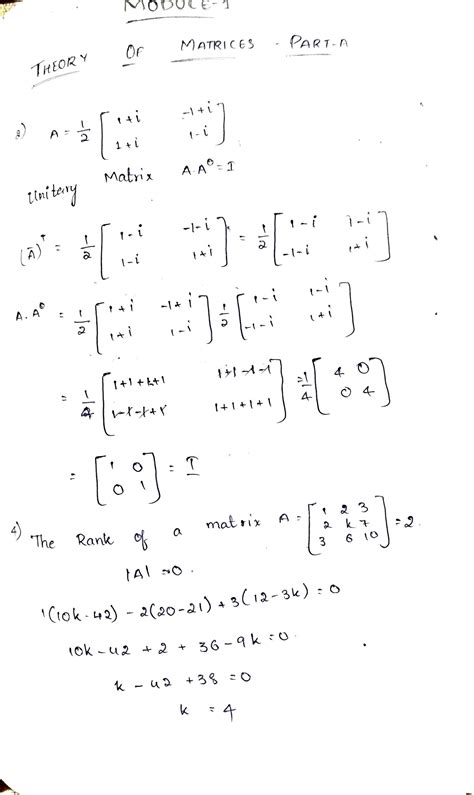 MODULE-1
THEORY OF MATRICES - PART-A
2) A = 1/2 [1+i -1+i; 1+i 1-i]
Unitery Matrix A.A^θ = I
(Ā)^T = 1/2 [1-i -1-i; 1-i 1+i] = 1/2 [1-i 1-i; -1-i 1+i]
A.A^θ = 1/2 [1+i -1+i; 1+i 1-i] 1/2 [1-i 1-i; -1-i 1+i]
= 1/4 [1+1+1+1 1+1-1-1; 1-1-1+1 1+1+1+1] = 1/4 [4 0; 0 4]
= [1 0; 0 1] = I
4) The Rank of a matrix A = [1 2 3; 2 k 7; 3 6 10] = 2.
|A| = 0.
1(10k-42) - 2(20-21) + 3(12-3k) = 0
10k - 42 + 2 + 36 - 9k = 0.
k - 42 + 38 = 0
k = 4